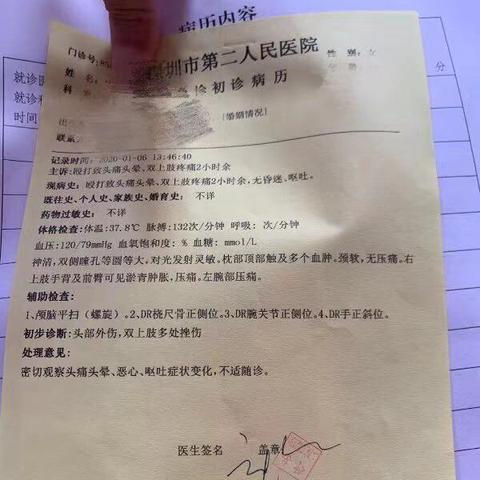 病历内容
门诊号:
深圳市第二人民医院
性 别:女
姓名
诊初诊病历
分
就诊
科
[婚姻情况]
就诊科
时间
联系
记录时间: 2020-01-06 13:46:40
主诉:殴打致头痛头晕,双上肢疼痛2小时余
现病史: 殴打致头痛头晕、双上肢疼痛2小时余,无昏迷、呕吐。
既往史、个人史、家族史、婚育史: 不详
药物过敏史: 不详
体格检查:体温:37.8℃ 脉搏:132次/分钟 呼吸: 次/分钟
血压:120/79mmHg 血氧饱和度: % 血糖: mmol/L
神清,双侧瞳孔等圆等大,对光发射灵敏。枕部顶部触及多个血肿。颈软,无压痛。右
上肢手背及前臂可见淤青肿胀,压痛。左腕部压痛。
辅助检查:
1、颅脑平扫(螺旋)。2、DR桡尺骨正侧位。3、DR腕关节正侧位。4、DR手正斜位。
初步诊断:头部外伤,双上肢多处挫伤
处理意见:
密切观察头痛头晕、恶心、呕吐症状变化,不适随诊。
医生签名
盖章: